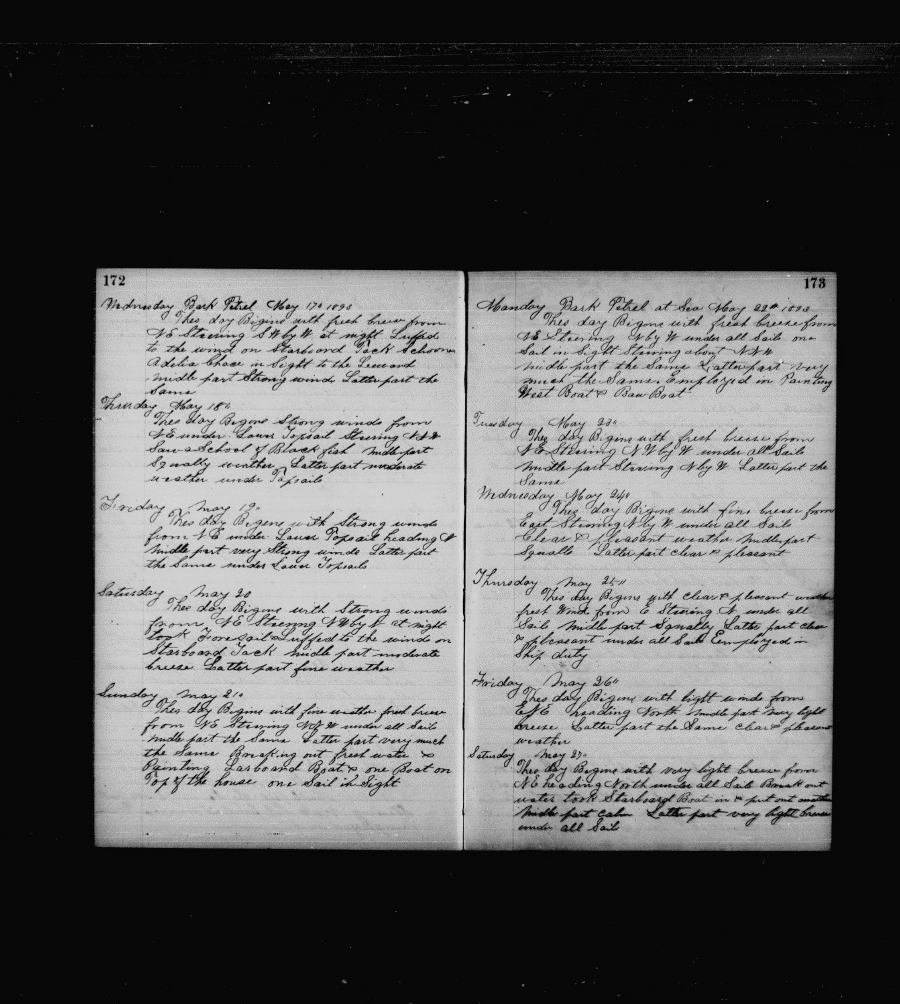 172
Wednesday Bark Petrel May 17th 1893
Thes day Bigins with fresh breese from
NE Steering SW by W at night Luffed
to the wind on Starboard Tack Schooner
Adelia Chace in Sight to the Leeward
midle part Strong winds Latter part the
Same
Thursday May 18th
Thes day Bigins Strong winds from
NE under Lower Topsail Steering
Saw a School of Blackfish midle part
Squally weather Latter part moderate
weather under Topsails
Friday May 19th
Thes day Bigins with Strong winds
from NE under Lower Topsail heading
midle part very Strong winds Latter part
the Same under Lower Topsails
Saturday May 20
Thes day Bigins with Strong winds
from NE Steering NW by W at night
took Foresail Luffed to the winds on
Starboard Tack midle part moderate
breese Latter part fine weather
Sunday May 21st
Thes day Bigins with fine weather fresh breese
from NE Steering NNW under all Sail
midle part the Same Latter part very much
the Same Breaking out fresh water &
Painting Larboard Boat & one Boat on
Top of the house one Sail in Sight
173
Manday Bark Petrel at Sea May 22nd 1893
Thes day Bigins with fresh breese from
NE Steering N by W under all Sails one
Sail in Sight Steering about NNW
midle part the Same Latter part very
much the Same. Employed in Painting
West Boat & Bow Boat
Tuesday May 23rd
Thes day Bigins with fresh breese from
NE Steering NW by W under all Sails
midle part Steering N by W Latter part the
Same
Wednesday May 24th
Thes day Bigins with fine breese from
East Steering N by W under all Sails
Clear & pleasant weather midle part
Squalls Latter part clear & pleasant
Thursday May 25th
Thes day Bigins with clear & pleasant weather
fresh Wind from E Steering N under all
Sails midle part Squally Latter part clear
& pleasant under all Sails Employed in
Ship duty
Friday May 26th
Thes day Bigins with light winds from
ENE heading North midle part very light
breese Latter part the Same clear & pleasant
weather
Saturday May 27th
Thes day Bigins with very light breese from
NE heading North under all Sails Break out
water took Starboard Boat in & put out another
Midle part calm Latter part very light breese
under all Sail